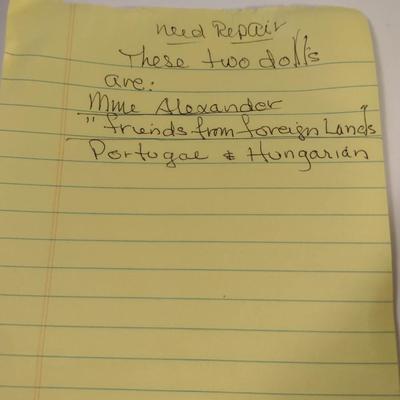 need Repair
These two doll's
are:
Mme Alexander
"friends from foreign Lands"
Portugae & Hungarian